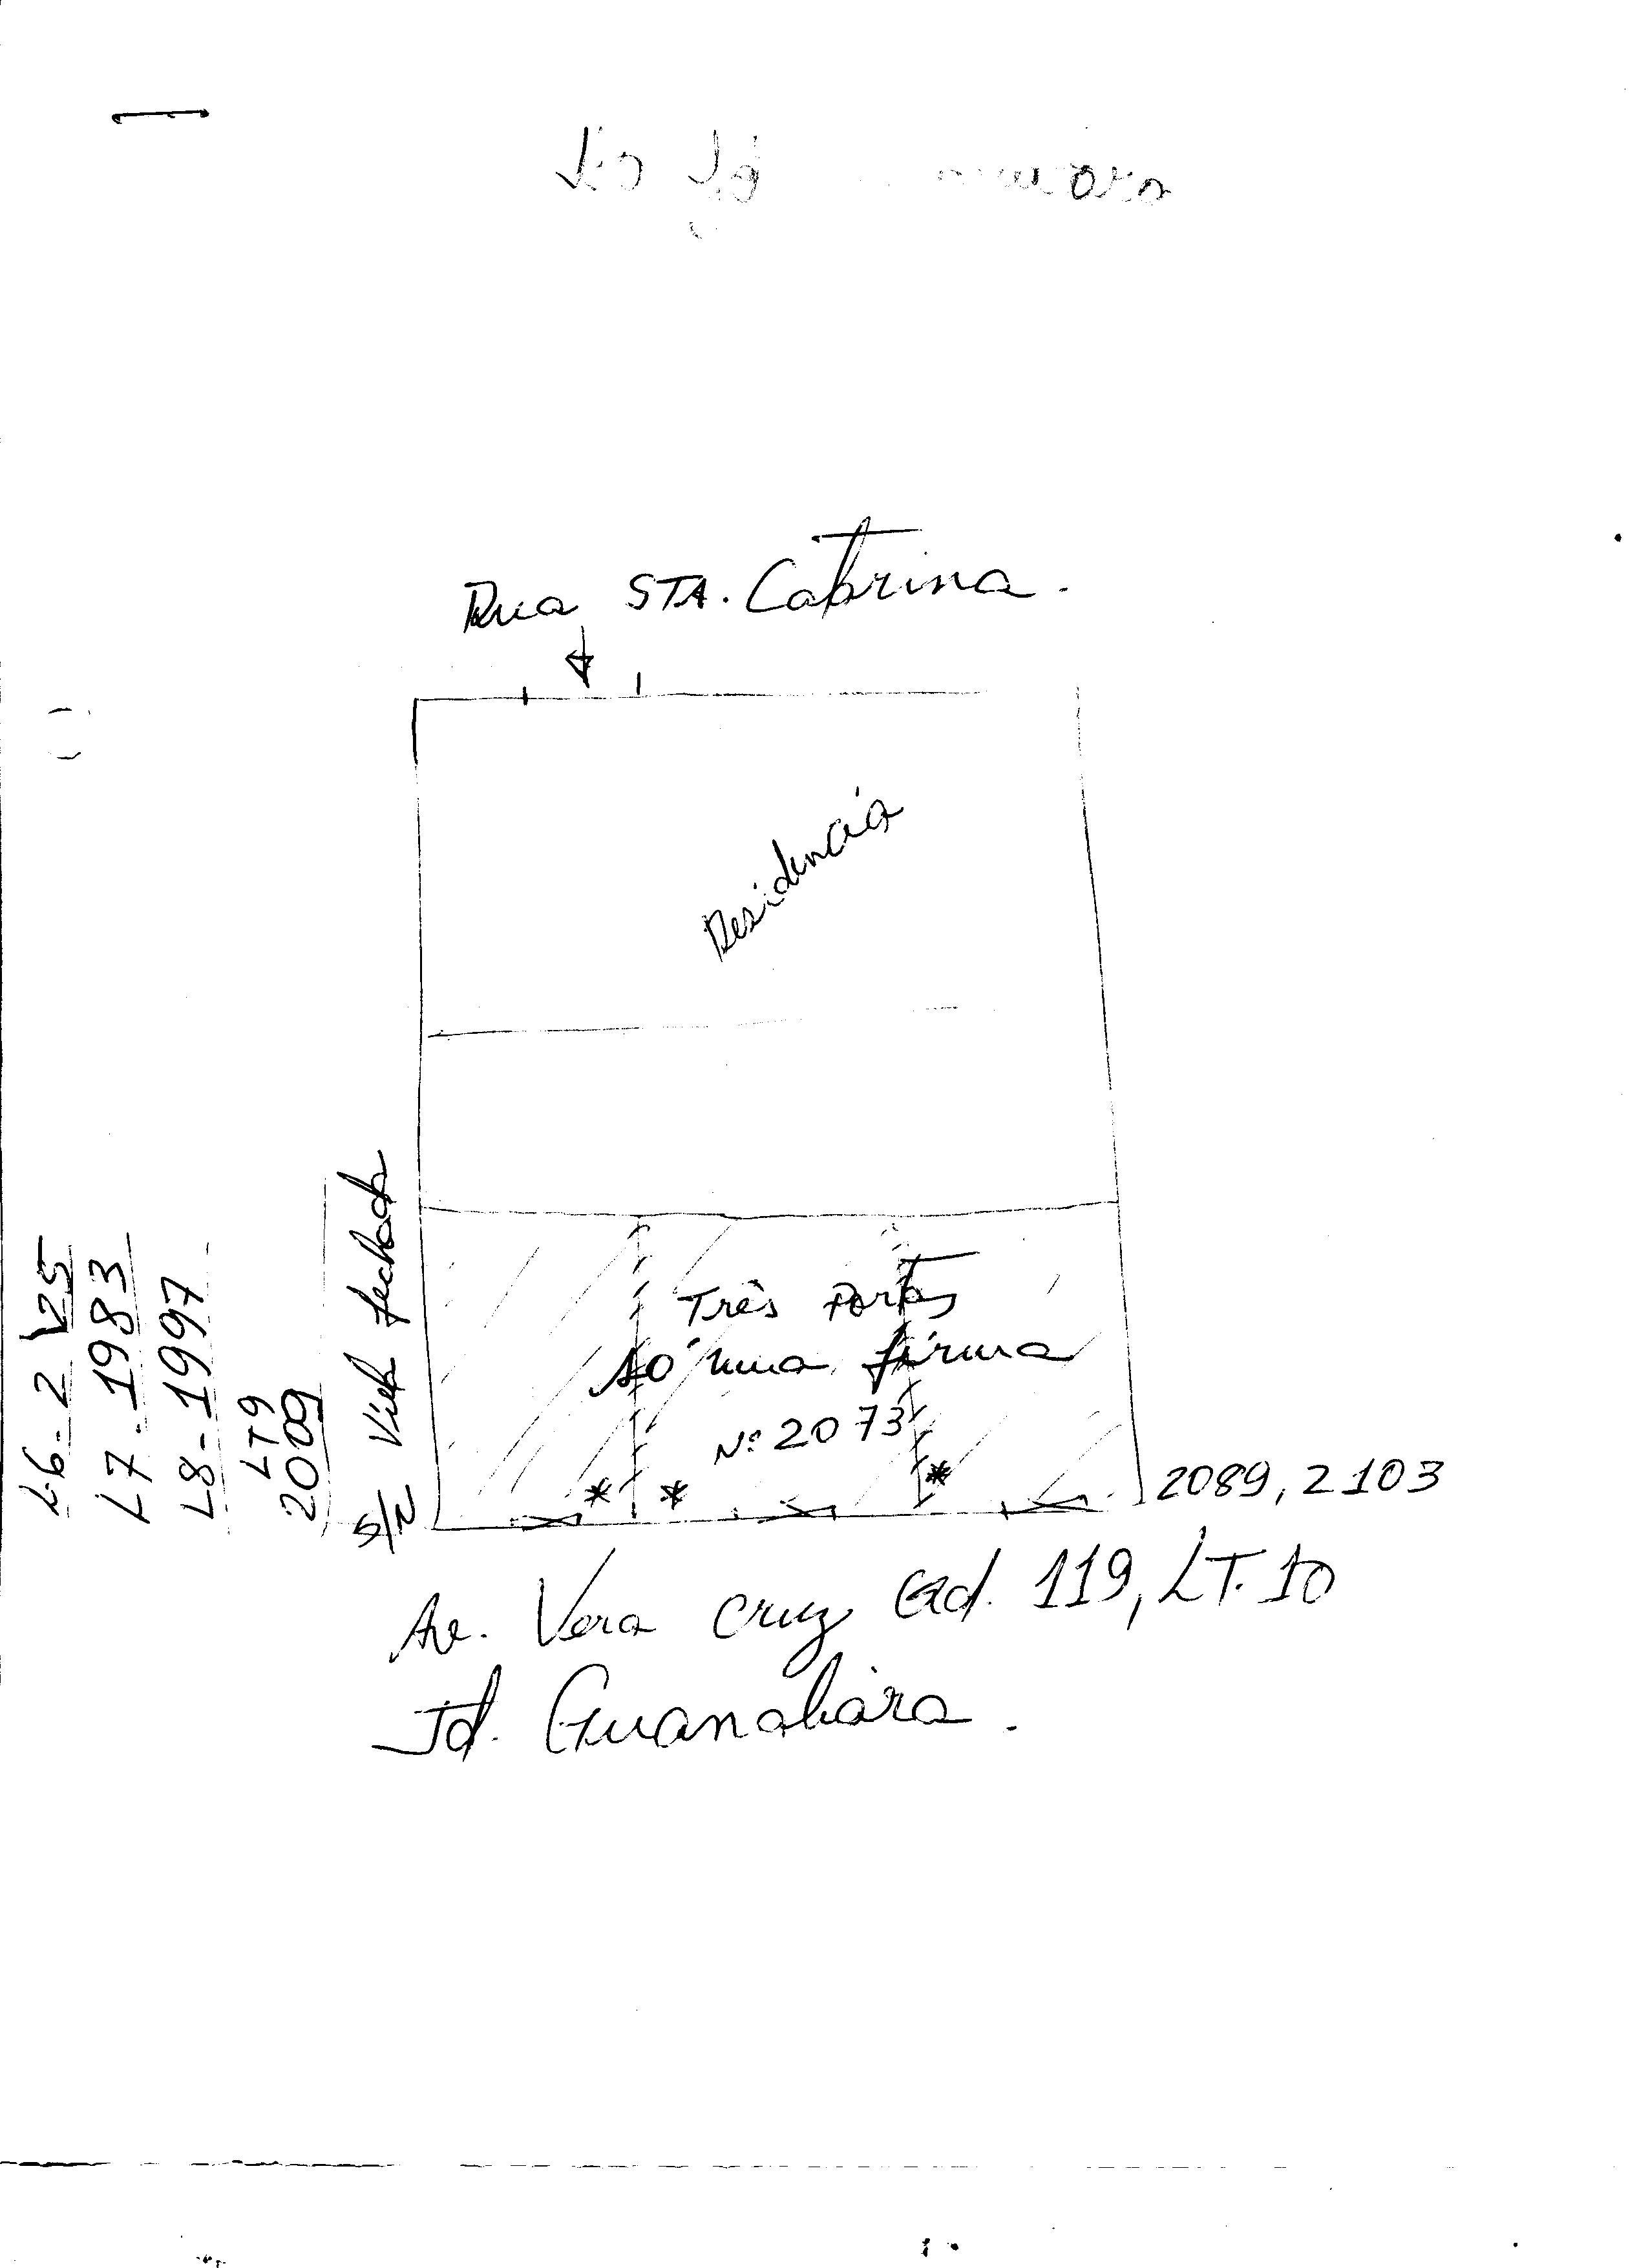 Rua STA. Catarina.
Residência
Três Portas
só uma firma
Nº 2073
* * *
2089, 2103
S/N Viela fechada
LT9
2009
L8-1997
L7-1983
Av. Vera Cruz Qd. 119, LT. 10
Jd. Guanabára.